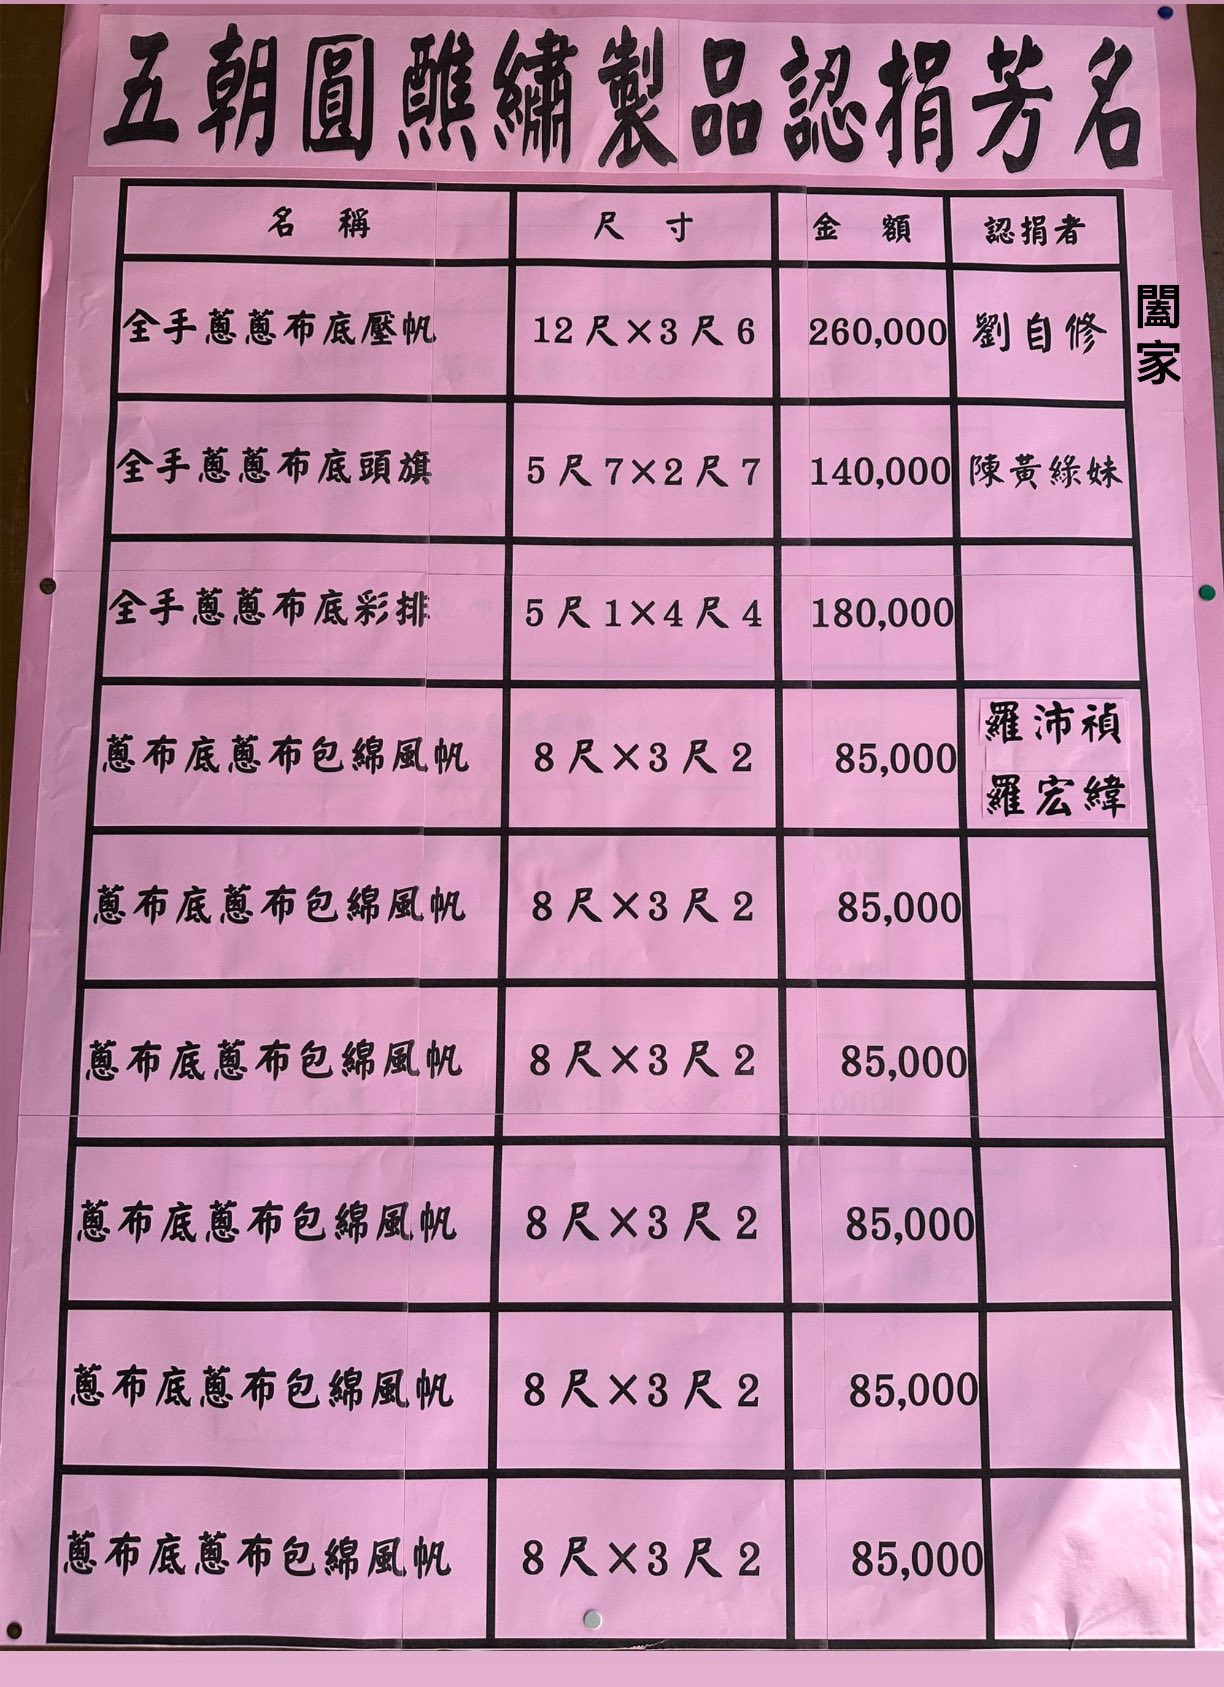 五朝圓醮繡製品認捐芳名
名稱 尺寸 金額 認捐者
全手蔥蔥布底壓帆 12尺×3尺6 260,000 劉自修 闔家
全手蔥蔥布底頭旗 5尺7×2尺7 140,000 陳黃綠妹
全手蔥蔥布底彩排 5尺1×4尺4 180,000
蔥布底蔥布包綿風帆 8尺×3尺2 85,000 羅沛禎
羅宏緯
蔥布底蔥布包綿風帆 8尺×3尺2 85,000
蔥布底蔥布包綿風帆 8尺×3尺2 85,000
蔥布底蔥布包綿風帆 8尺×3尺2 85,000
蔥布底蔥布包綿風帆 8尺×3尺2 85,000
蔥布底蔥布包綿風帆 8尺×3尺2 85,000